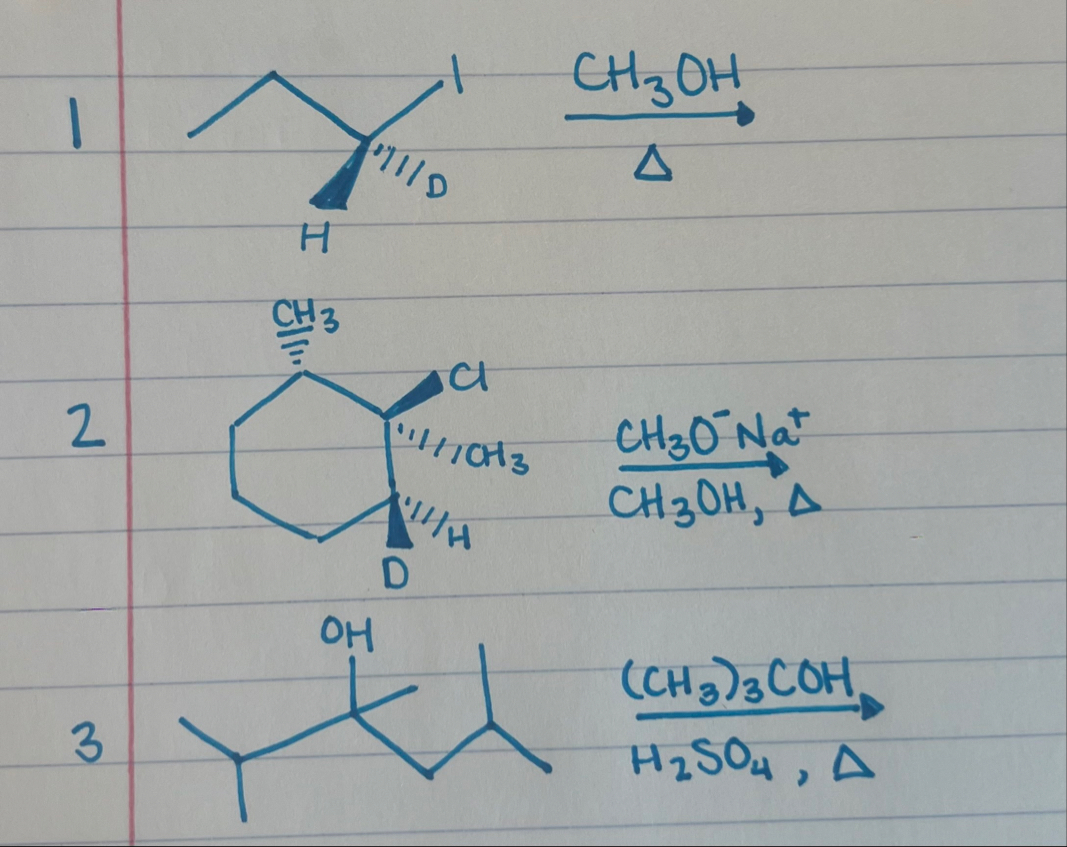 1
I
CH₃OH
Δ
D
H
2
CH₃
Cl
CH₃
H
D
CH₃O⁻Na⁺
CH₃OH, Δ
3
OH
(CH₃)₃COH
H₂SO₄, Δ